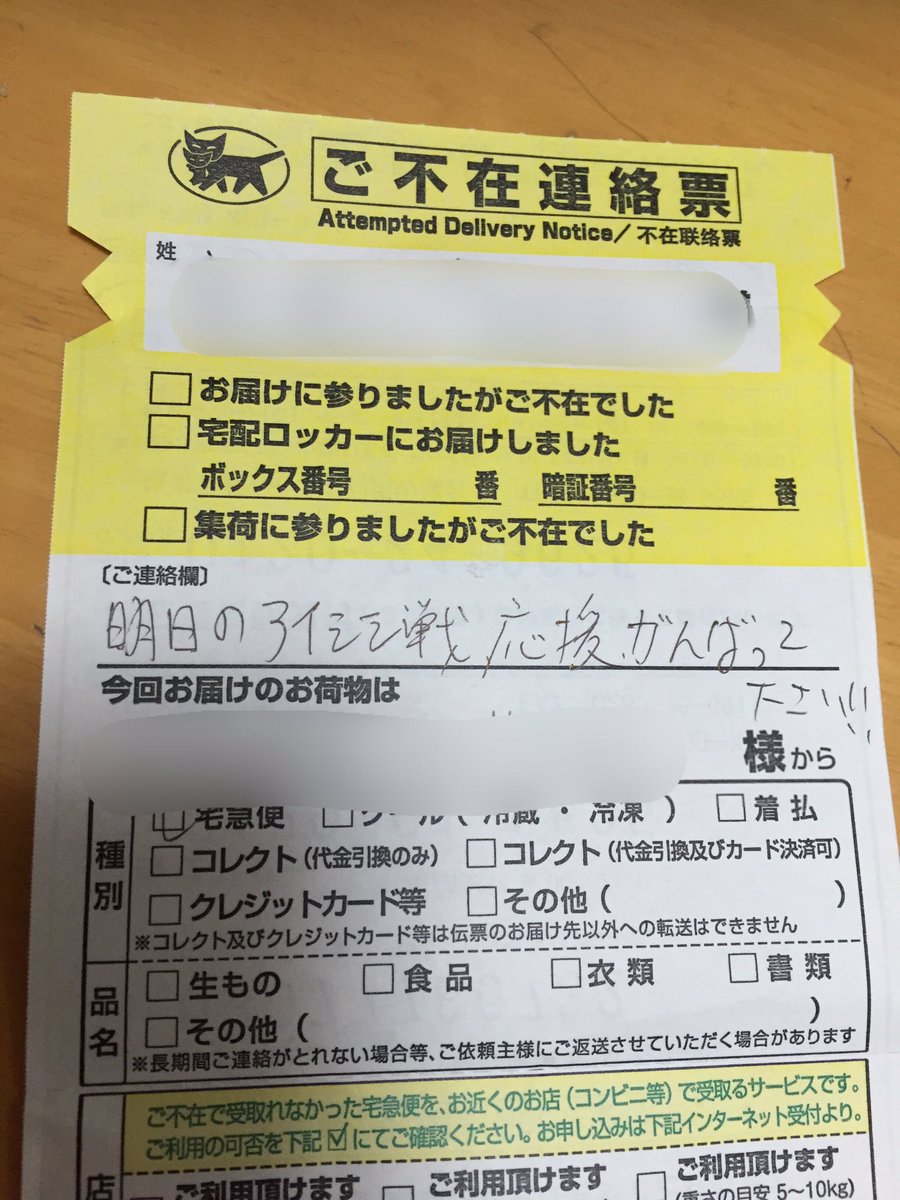 ご不在連絡票
Attempted Delivery Notice/不在联络票
姓
お届けに参りましたがご不在でした
宅配ロッカーにお届けしました
ボックス番号 番 暗証番号 番
集荷に参りましたがご不在でした
〔ご連絡欄〕
明日のアイシン戦 応援がんばって
下さい!!!
今回お届けのお荷物は
様から
種別
宅急便 クール(冷蔵・冷凍) 着払
コレクト(代金引換のみ) コレクト(代金引換及びカード決済可)
クレジットカード等 その他( )
※コレクト及びクレジットカード等は伝票のお届け先以外への転送はできません
品名
生もの 食品 衣類 書類
その他( )
※長期間ご連絡がとれない場合等、ご依頼主様にご返送させていただく場合があります
ご不在で受取れなかった宅急便を、お近くのお店(コンビニ等)で受取るサービスです。
ご利用の可否を下記☑にてご確認ください。お申し込みは下記インターネット受付より。
店
ご利用頂けます ご利用頂けます ご利用頂けます
(重さの目安 5~10kg)